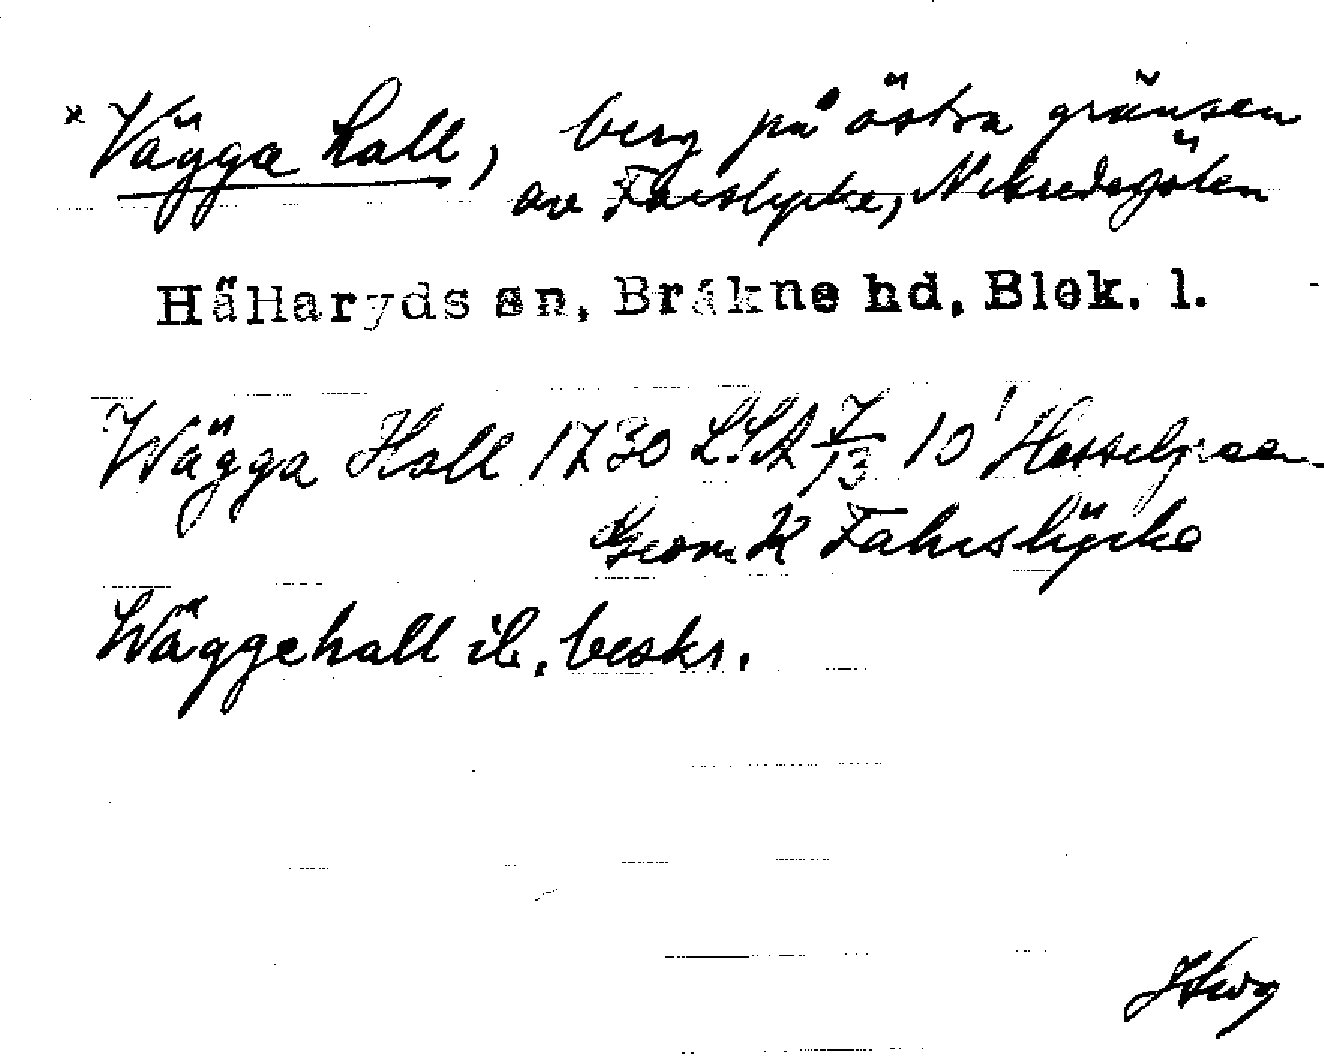 × Vägga hall, berg på östra gränsen
av Farslycke, Nibredagölen
Hällaryds sn, Bräkne hd, Blek. l.
Wägga Hall 1730 LSA 7/13 10' Hesselgraan
Geom K Fahrslÿcke
Wäggehall ib. beskr.